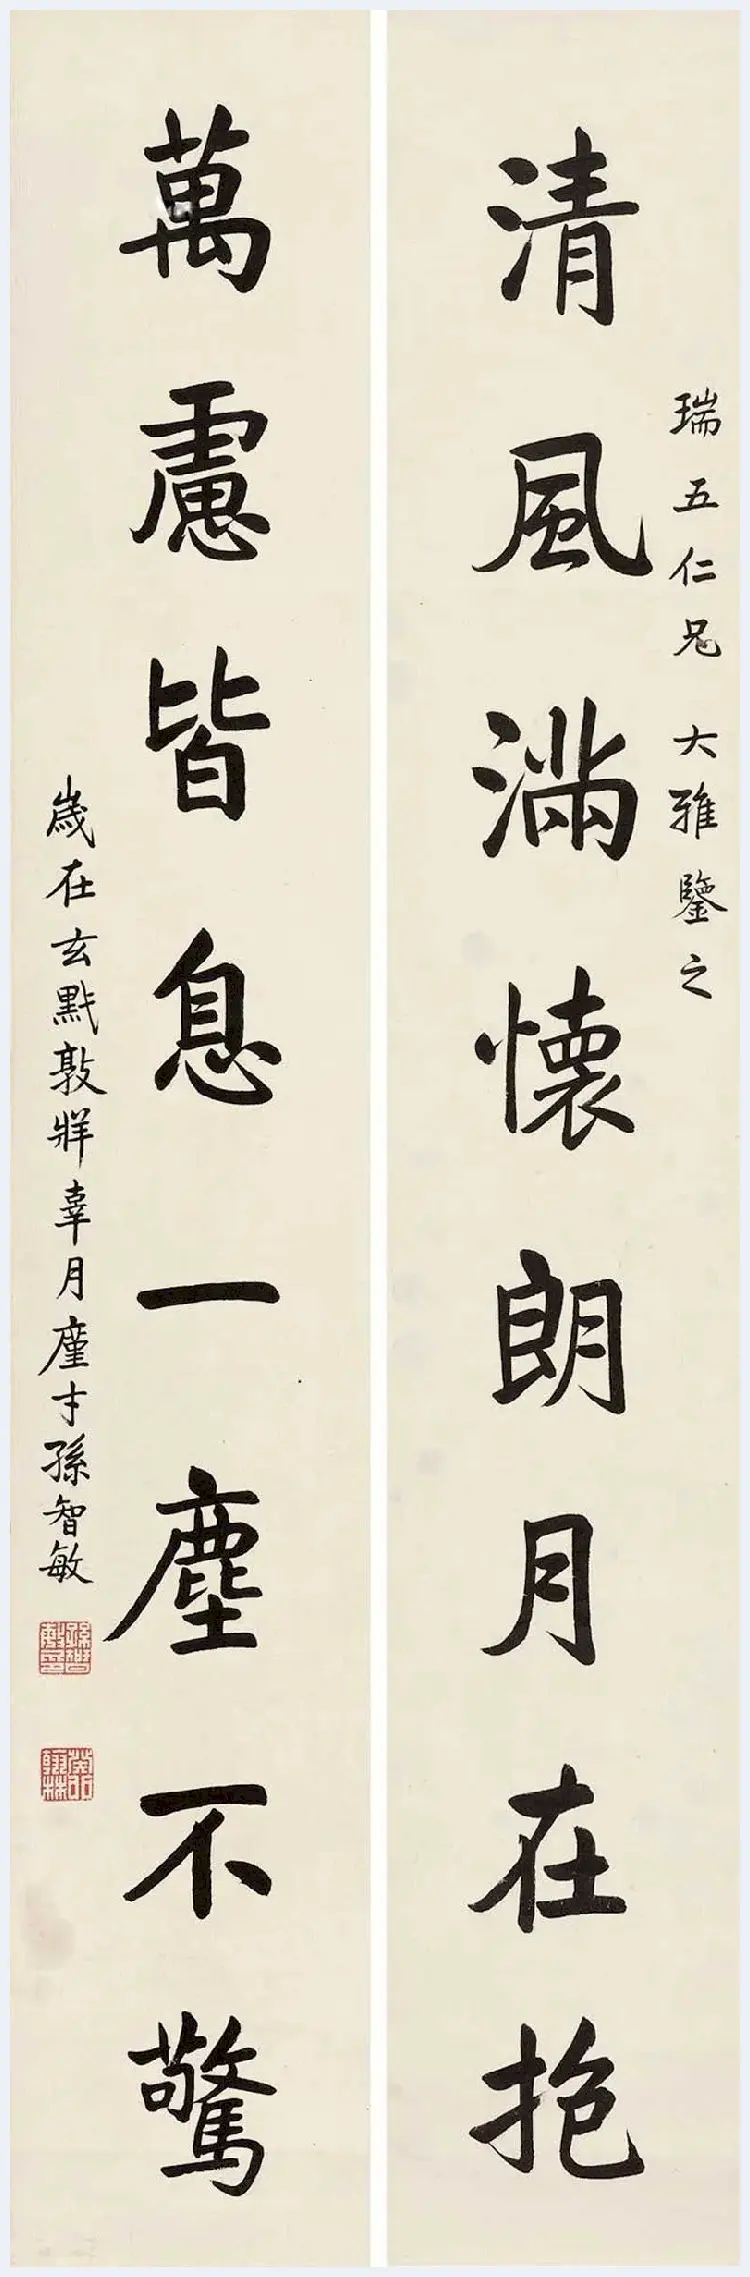 瑞五仁兄 大雅鑒之
清風滿懷朗月在抱
萬慮皆息一塵不驚
歲在玄黓敦牂辜月廑才孫智敏